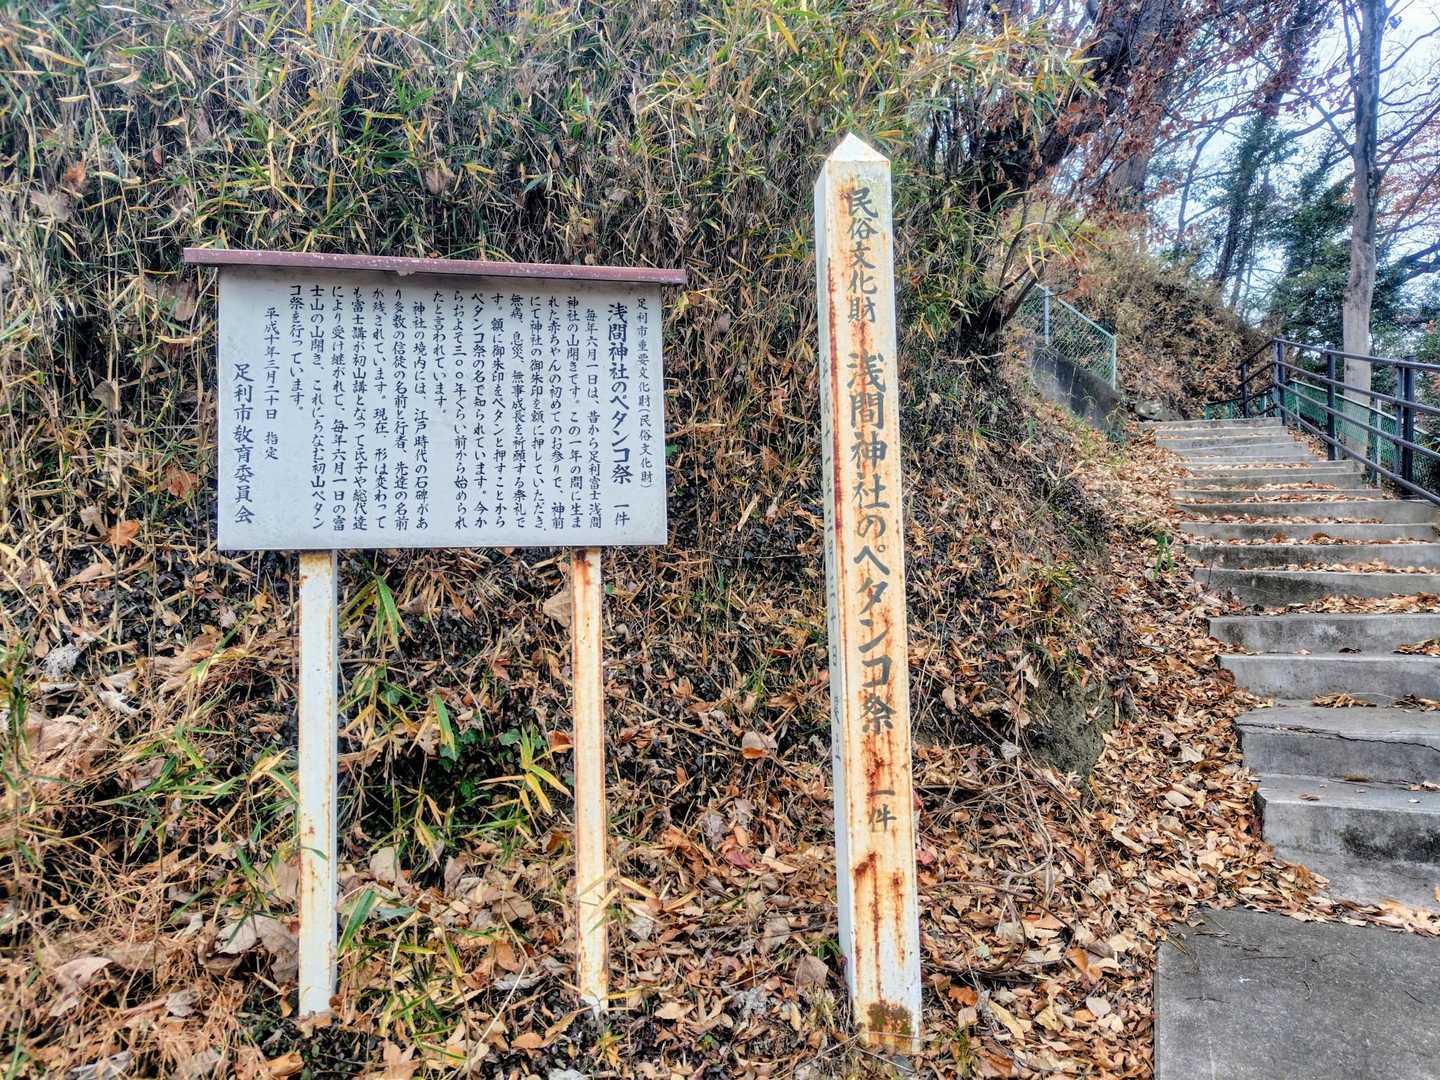 足利市重要文化財(民俗文化財)
浅間神社のペタンコ祭 一件
毎年六月一日は、昔から足利富士浅間
神社の山開きです。この一年の間に生ま
れた赤ちゃんの初めてのお参りで、神前
にて神社の御朱印を額に押していただき、
無病、息災、無事成長を祈願する祭礼で
す。額に御朱印をペタンと押すことから
ペタンコ祭の名で知られています。今か
らおよそ三〇〇年ぐらい前から始められ
たと言われています。
神社の境内には、江戸時代の石碑があ
り多数の信徒の名前と行者、先達の名前
が残されています。現在、形は変わって
も富士講が初山講となって氏子や総代達
により受け継がれて、毎年六月一日の富
士山の山開き、これにちなむ初山ペタン
コ祭を行っています。
平成十年三月二十日 指定
足利市教育委員会
民俗文化財 浅間神社のペタンコ祭 一件